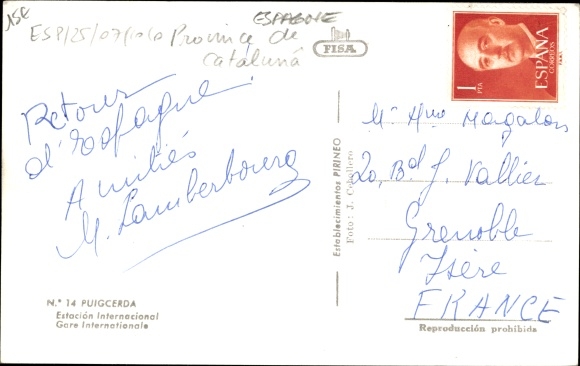 ESPAGNE
ESP/25/07/010 Province de
Cataluná
FISA
1
PTA
ESPAÑA
CORREOS
Retour
d'Espagne.
Amitiés
M. Lamberbourg
Mᵉ Hno Magalon
20, Bᵈ J. Vallier
Grenoble
Isère
FRANCE
Establecimientos PIRINEO
Foto: J. Caballero
N.º 14 PUIGCERDA
Estación Internacional
Gare Internationale
Reproducción prohibida